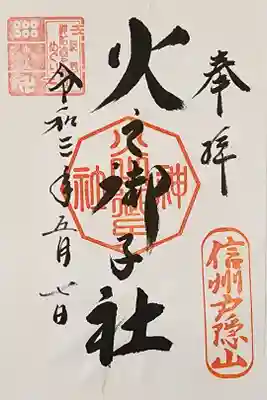 奉拝
信州戸隠山
火之御子社
令和三年五月七日